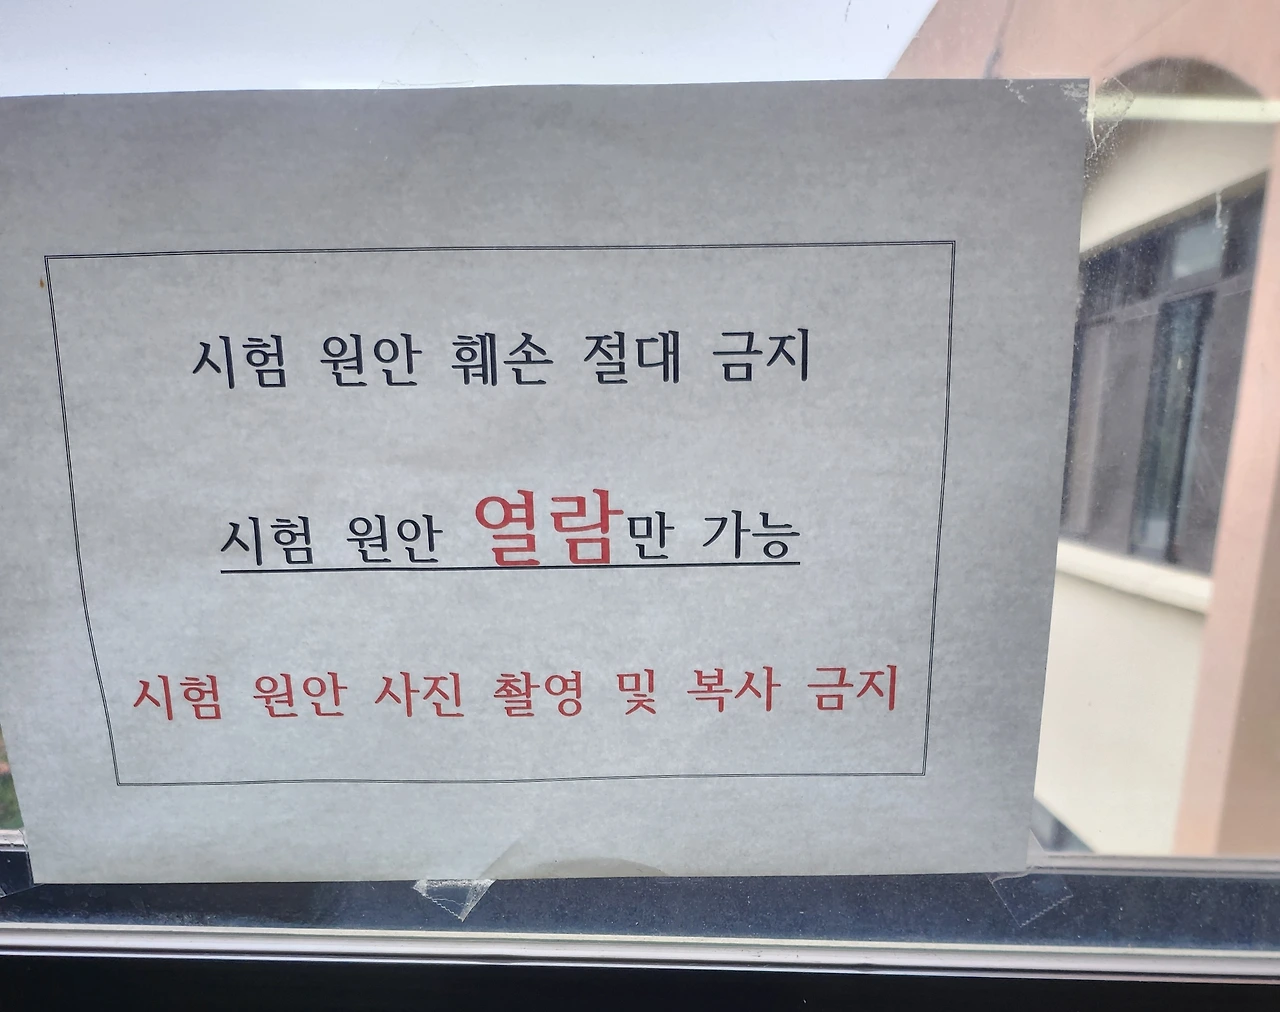 시험 원안 훼손 절대 금지
시험 원안 열람만 가능
시험 원안 사진 촬영 및 복사 금지